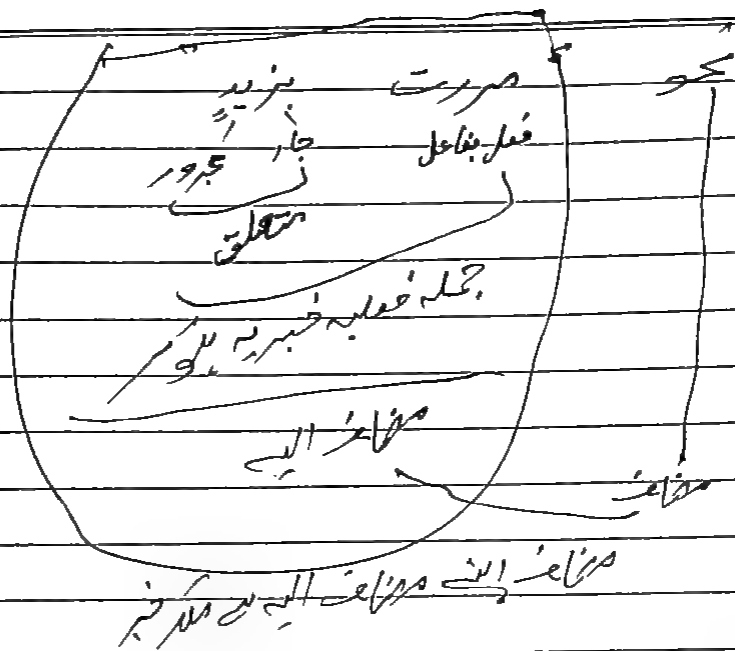 نحو مررت بزیدٍ
فعل بفاعل جار مجرور
متعلق
جملہ فعلیہ خبریہ ہوکر
مضاف الیہ
مضاف
مضاف اپنے مضاف الیہ سے ملکر خبر